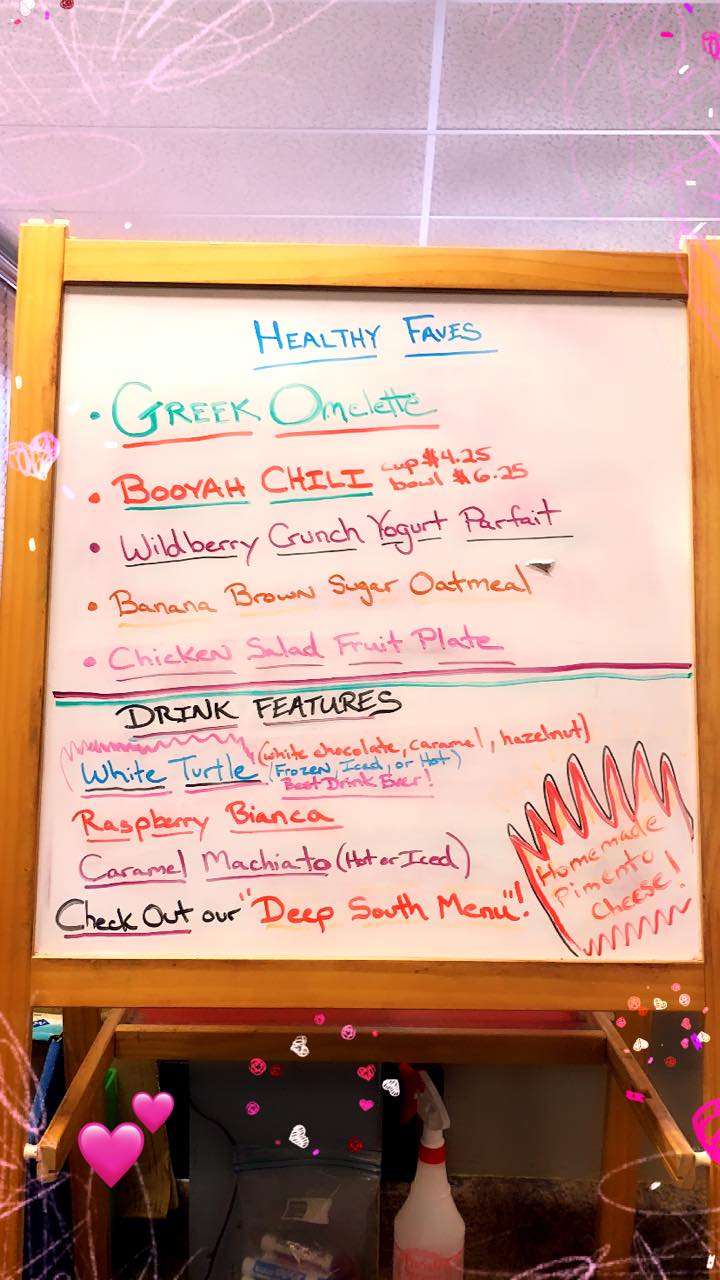 HEALTHY FAVES
• GREEK Omelette
• BOOYAH CHILI cup $4.25
bowl $6.25
• Wildberry Crunch Yogurt Parfait
• Banana Brown Sugar Oatmeal
• Chicken Salad Fruit Plate
DRINK FEATURES
White Turtle (white chocolate, caramel, hazelnut)
(Frozen, Iced, or Hot)
Best Drink Ever!
Raspberry Bianca
Caramel Machiato (Hot or Iced)
Check Out our "Deep South Menu"!
Homemade
Pimento
Cheese!